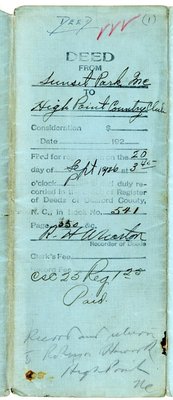 DEED
(1)
DEED
FROM
Sunset Park Inc
TO
High Point Country Club
Consideration $
Date 192
Filed for on the 20
day of Sept 1926 at 3 40
o'clock duly re-
corded in the of Register
of Deeds of Guilford County,
N. C., in Book No. 541
Page 350 &c.
R H Wharton
Recorder of Deeds
Clerk's Fee
CSC 25 Reg 1 20
Paid
Record and return
to Roberson Haworth
High Point
NC